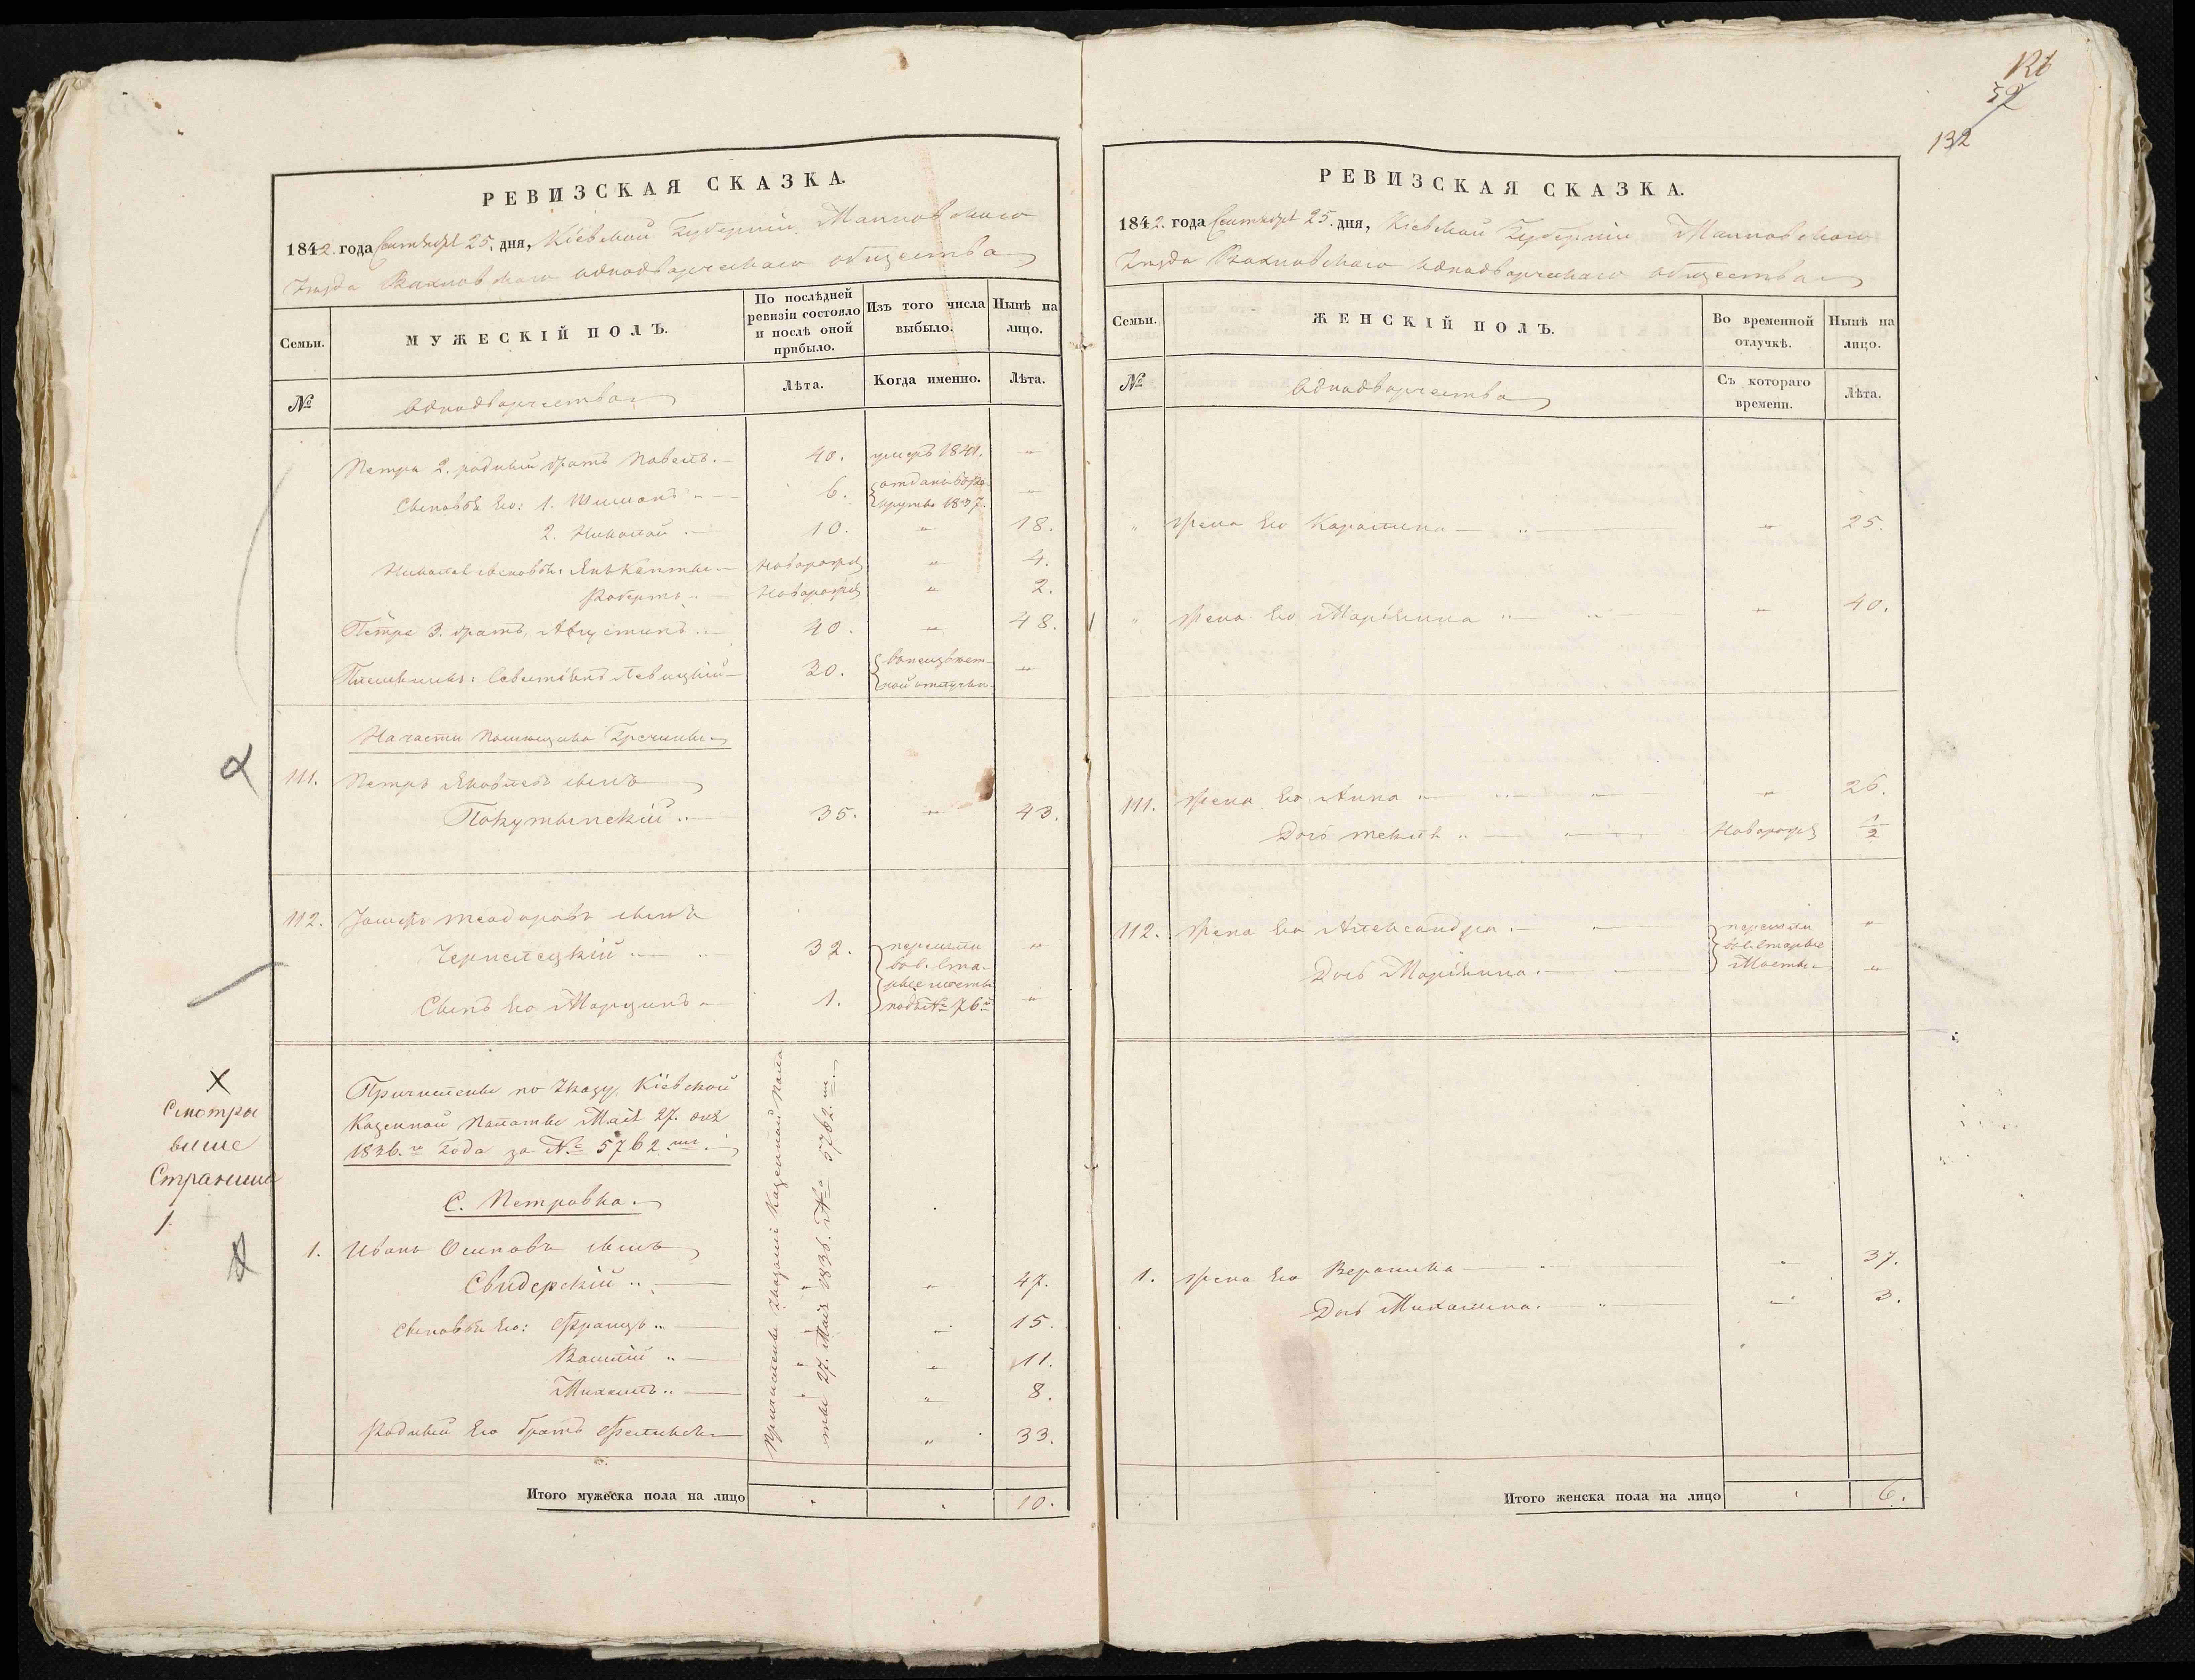 РЕВИЗСКАЯ СКАЗКА.
1842. года Сентября 25. дня, Кіевской Губерніи,
Уезда Вахновского однодворческаго общества
Семьи.
МУЖЕСКІЙ ПОЛЪ.
По послѣдней ревизіи состояло и послѣ оной прибыло.
Изъ того числа выбыло.
Нынѣ на лицо.
№
однодворчества
Лѣта.
Когда именно.
Лѣта.
Петра 2. родный братъ Павелъ. 40. умеръ 1841. "
Сыновья Его: 1. Шимонъ 6. отданъ въ рекруты 1837. "
2. Николай 10. " 18.
Николая сыновья: Новорожд " 4.
Робертъ Новорожд " 2.
Петра 3. братъ, Августинъ 40. " 48.
Племянникъ: Левицкій 30. "
На части помещика
111. Петръ Яковлевъ сынъ
Покутынскій 35. " 43.
112. Іосифъ Теодоровъ сынъ
Чернелецкій 32. "
перешли
въ с. Ста-
рые мосты
подъ № 76й
Сынъ Его Марцинъ 1. "
Причислены по Указу Кіевской
Казенной Палаты Мая 27. дня
1836.го Года за № 5762.мъ
С. Петровка.
1. Иванъ Осиповъ сынъ
Свидерскій " 47.
Сыновья Его: Францъ " 15.
Василій " 11.
Михаилъ " 8.
Родный Его братъ Феликсъ " 33.
Причислены Указомъ Казенной Пала-
ты 27. Мая 1836. № 5762.мъ
Итого мужеска пола на лицо 10.
Смотры
выше
Страница
1.
132
РЕВИЗСКАЯ СКАЗКА.
1842. года Сентября 25. дня, Кіевской Губерніи
Уезда Вахновского однодворческаго общества
Семьи.
ЖЕНСКІЙ ПОЛЪ.
Во временной отлучкѣ.
Нынѣ на лицо.
№
однодворчества
Съ котораго времени.
Лѣта.
" жена Его Каролина " 25.
" жена Его Маріянна " 40.
111. жена Его Анна " 26.
Дочь Текля Новорожд 1/2
112. жена Его Александра "
перешли
въ с. Старые
Мосты
Дочь Маріянна "
1. жена Его Вероника " 37.
Дочь Михалина. " 3.
Итого женска пола на лицо 6.